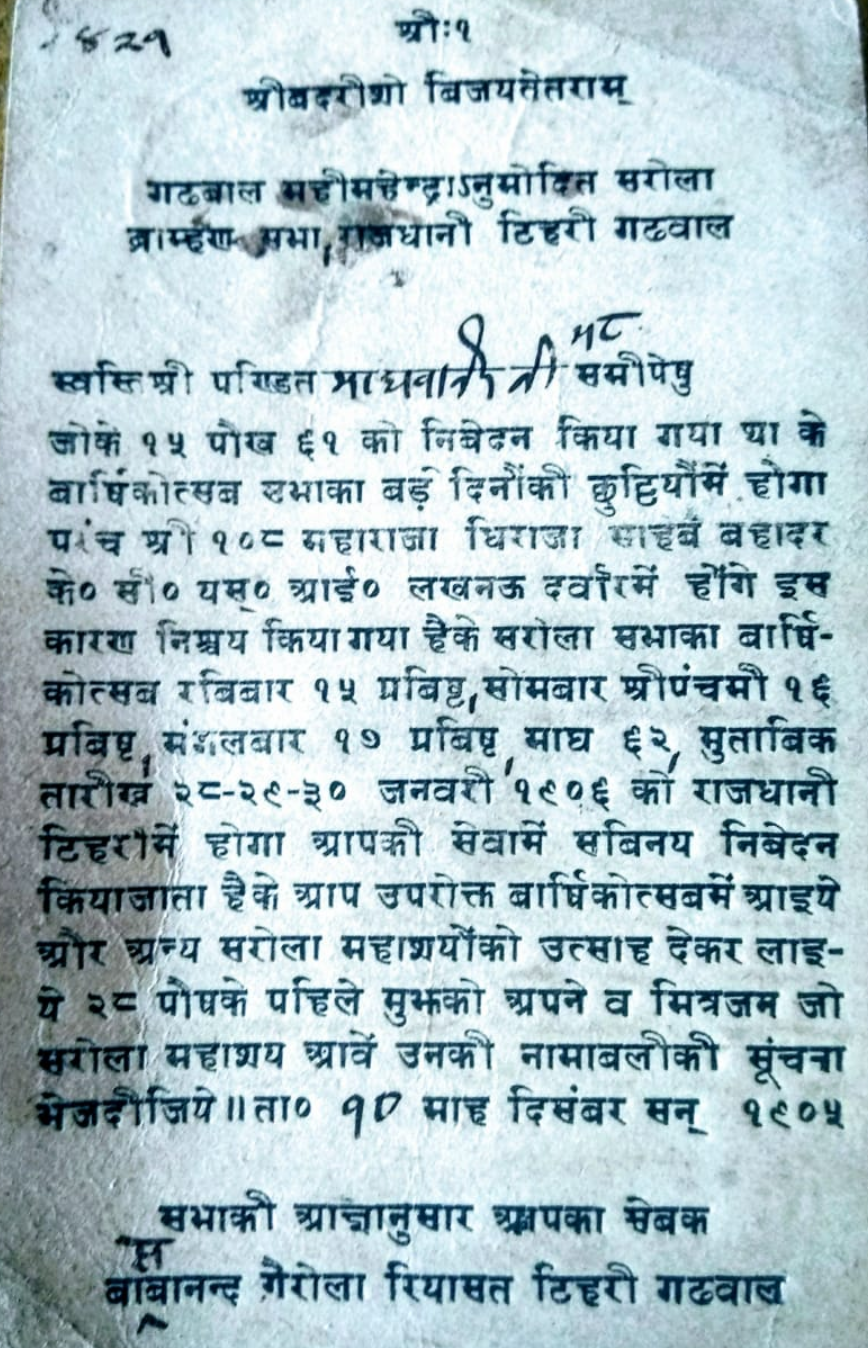 ४२१
श्रीः१
श्रीबदरीशो बिजयतेतराम्
गढबाल महीमहेन्द्राऽनुमोदित सरोला
ब्राम्हण सभा, राजधानी टिहरी गढवाल
५८
स्वस्ति श्री पण्डित समीपेषु
जोके १५ पौख ६१ को निबेदन किया गया था के
बार्षिकोत्सब सभाका बड़े दिनोंकी छुट्टियोंमें होगा
पांच श्री १०८ महाराजा धिराजा साहब बहादर
के० सी० यस्० आई० लखनऊ दर्वारमें होंगे इस
कारण निश्चय किया गया हैके सरोला सभाका बार्षि-
कोत्सब रबिबार १५ प्रबिष्ट, सोमबार श्रीपंचमी १६
प्रबिष्ट, मंगलबार १७ प्रबिष्ट, माघ ६२, मुताबिक
तारीख २८-२९-३० जनवरी १९०६ को राजधानी
टिहरीमें होगा आपकी सेवामें सबिनय निबेदन
कियाजाता हैके आप उपरोक्त बार्षिकोत्सबमें आइये
और अन्य सरोला महाशयोंको उत्साह देकर लाइ-
ये २८ पौषके पहिले मुझको अपने व मित्रजन जो
सरोला महाशय आवें उनकी नामाबलीकी सूंचना
भेजदीजिये॥ ता० १० माह दिसंबर सन् १९०५
सभाकी आज्ञानुसार आपका सेबक
स
बाबानन्द गैरोला रियासत टिहरी गढवाल